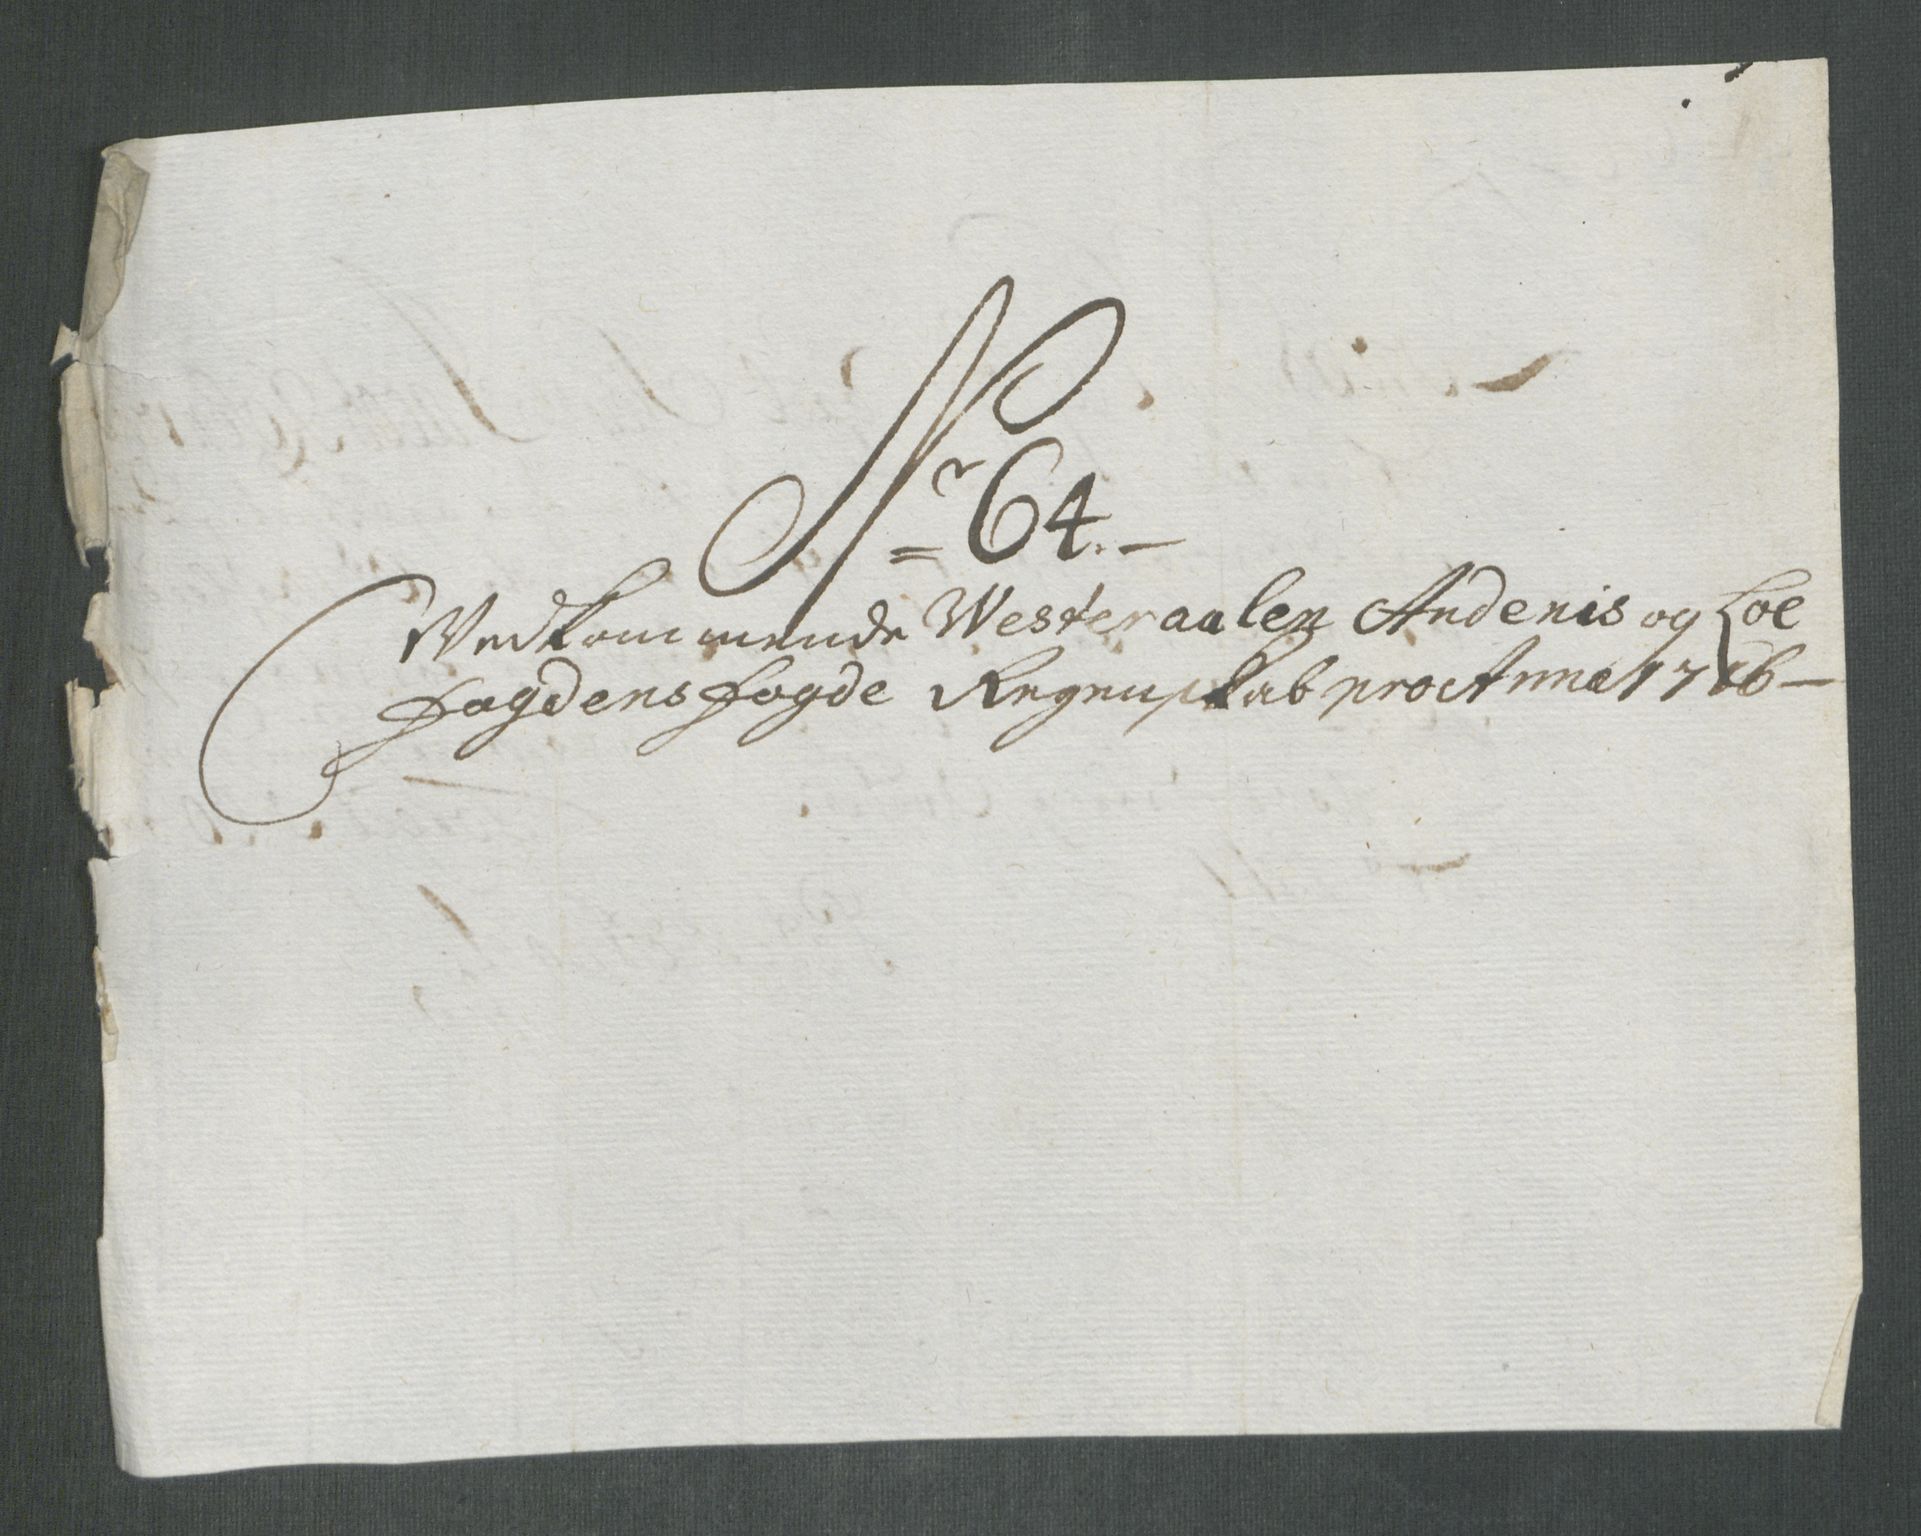 Nr 64.
Vedkommende Westeraalen Andenis og Loe
fogdens fogde Regenskab pro Anno 1716